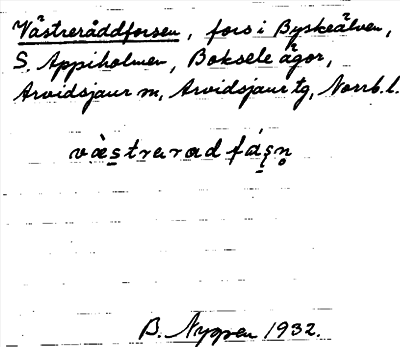 Västreråddforsen, fors i Byskeälven,
S. Appiholmen, Boksele ägor,
Arvidsjaur m, Arvidsjaur tg, Norrb. l.
và̀s̲trarad fás̲n̥
B. Nygren 1932.